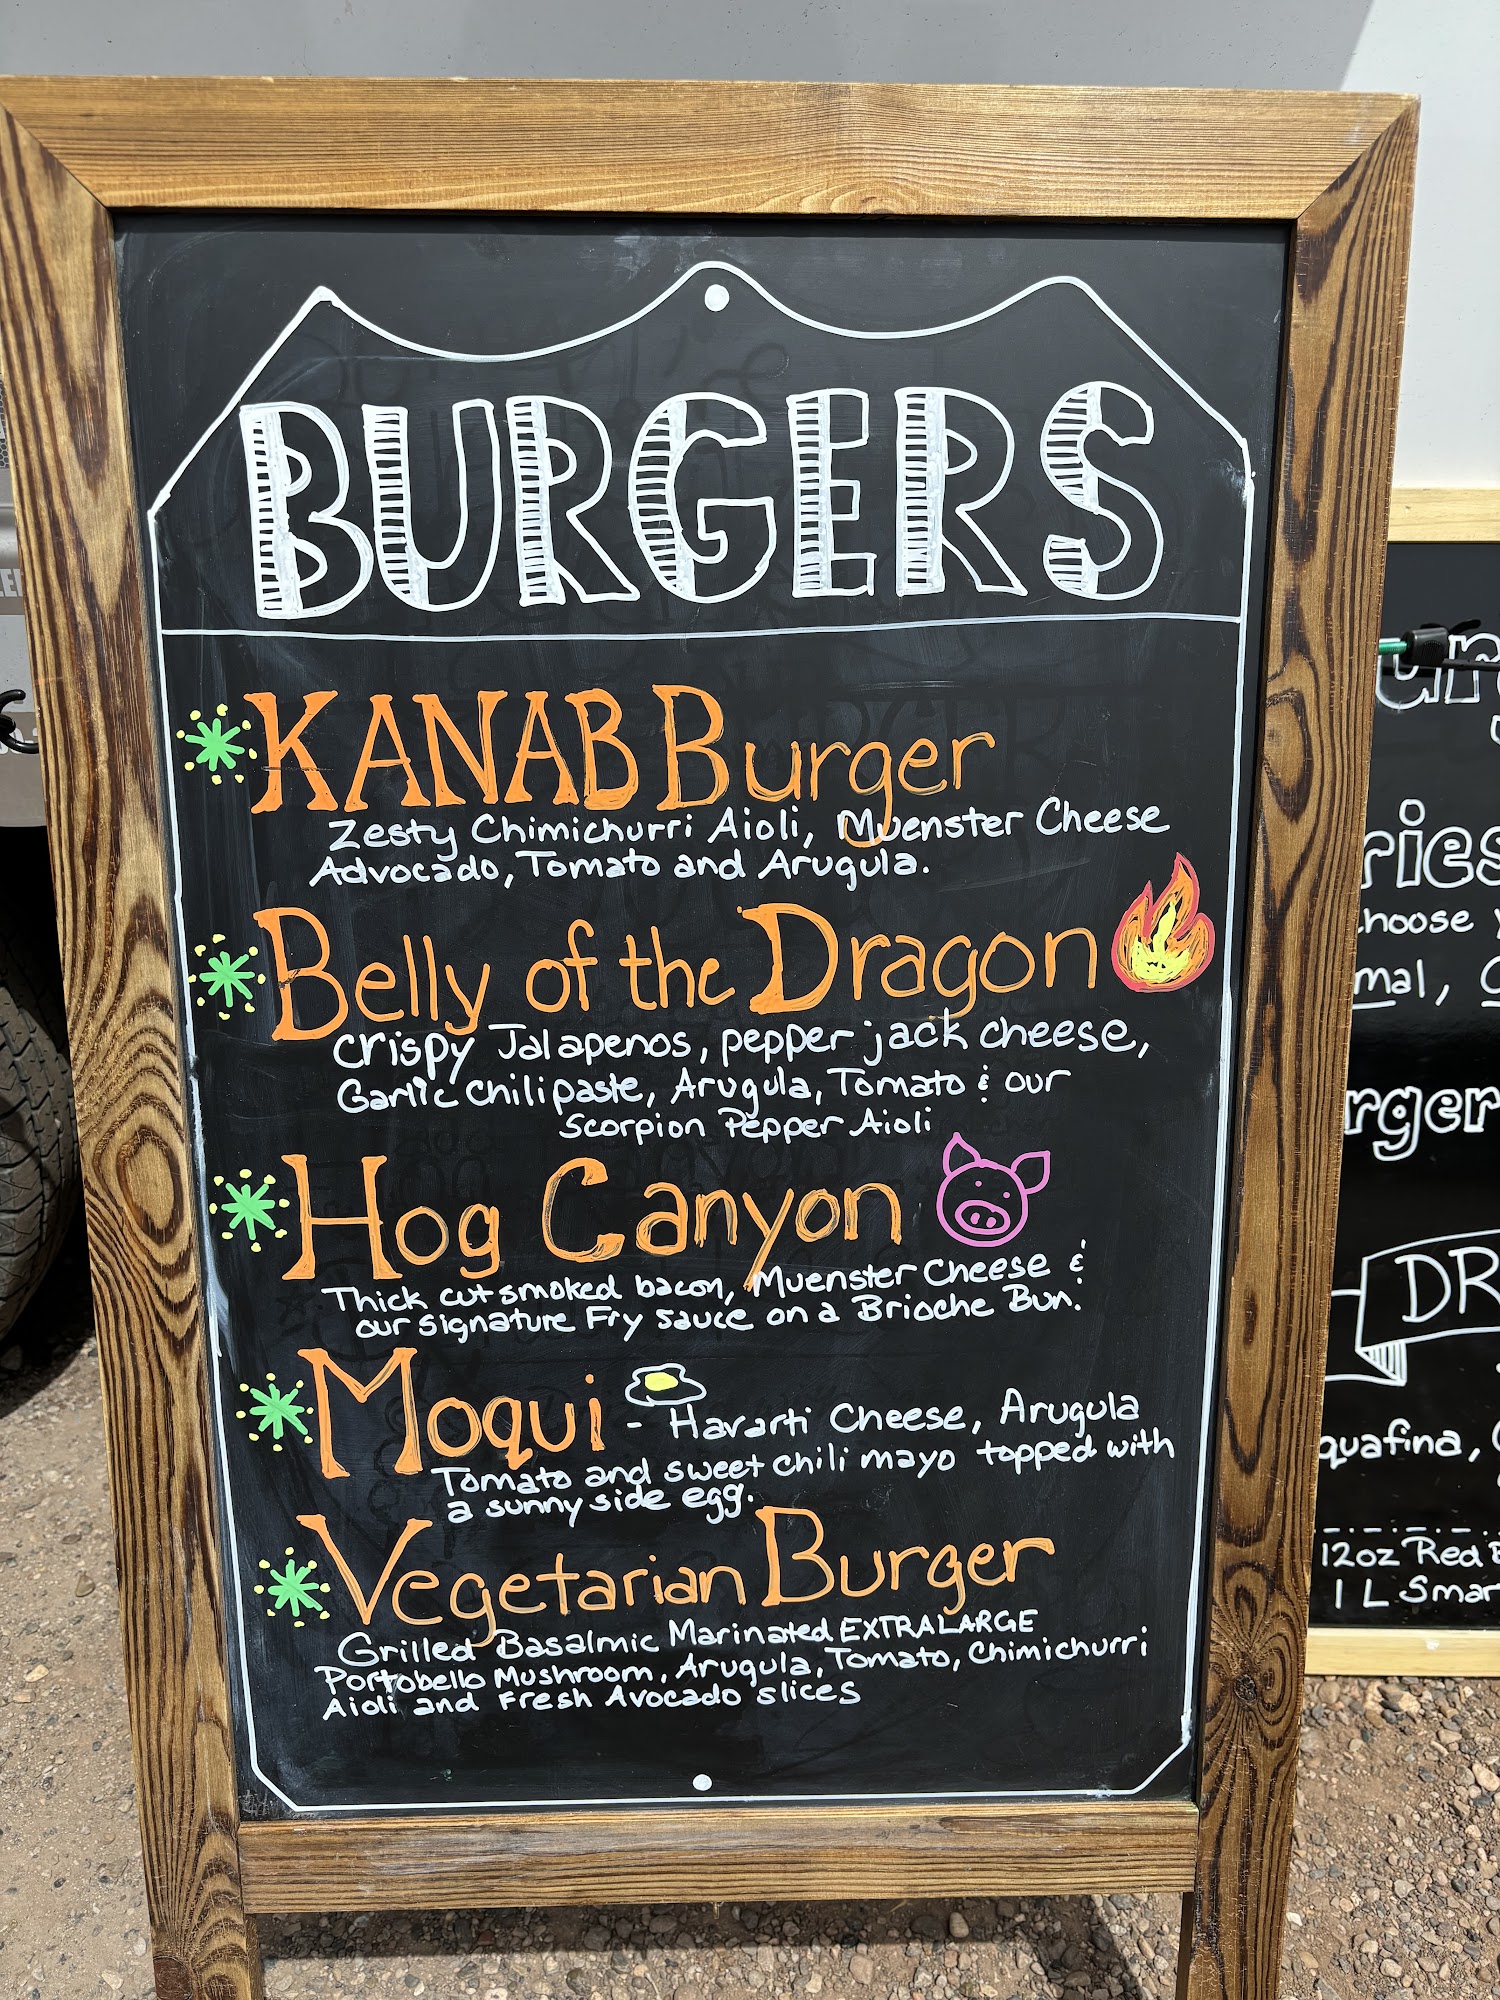 BURGERS
KANAB Burger
Zesty Chimichurri Aioli, Muenster Cheese
Advocado, Tomato and Arugula.
Belly of the Dragon
Crispy Jalapenos, pepper jack cheese,
Garlic chili paste, Arugula, Tomato & our
Scorpion Pepper Aioli
Hog Canyon
Thick cut smoked bacon, Muenster Cheese &
our signature Fry sauce on a Brioche Bun.
Moqui - Havarti Cheese, Arugula
Tomato and sweet chili mayo topped with
a sunny side egg.
Vegetarian Burger
Grilled Basalmic Marinated EXTRA LARGE
Portobello Mushroom, Arugula, Tomato, Chimichurri
Aioli and Fresh Avocado slices
ries
hoose
mal,
rger
DR
quafina,
12oz Red
1 L Smar